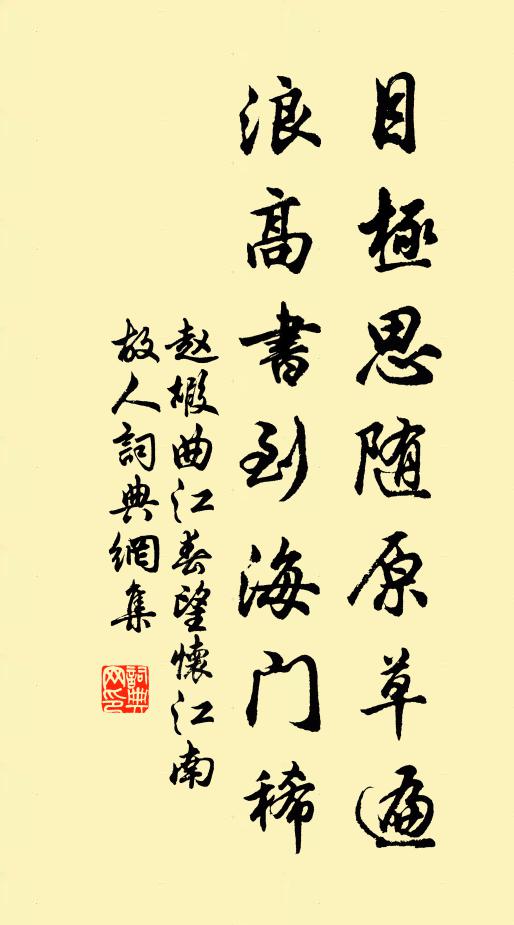 目極思随原草遍
浪高書到海門稀
赵嘏曲江春望懷江南
故人詞典網集
詞典
网印